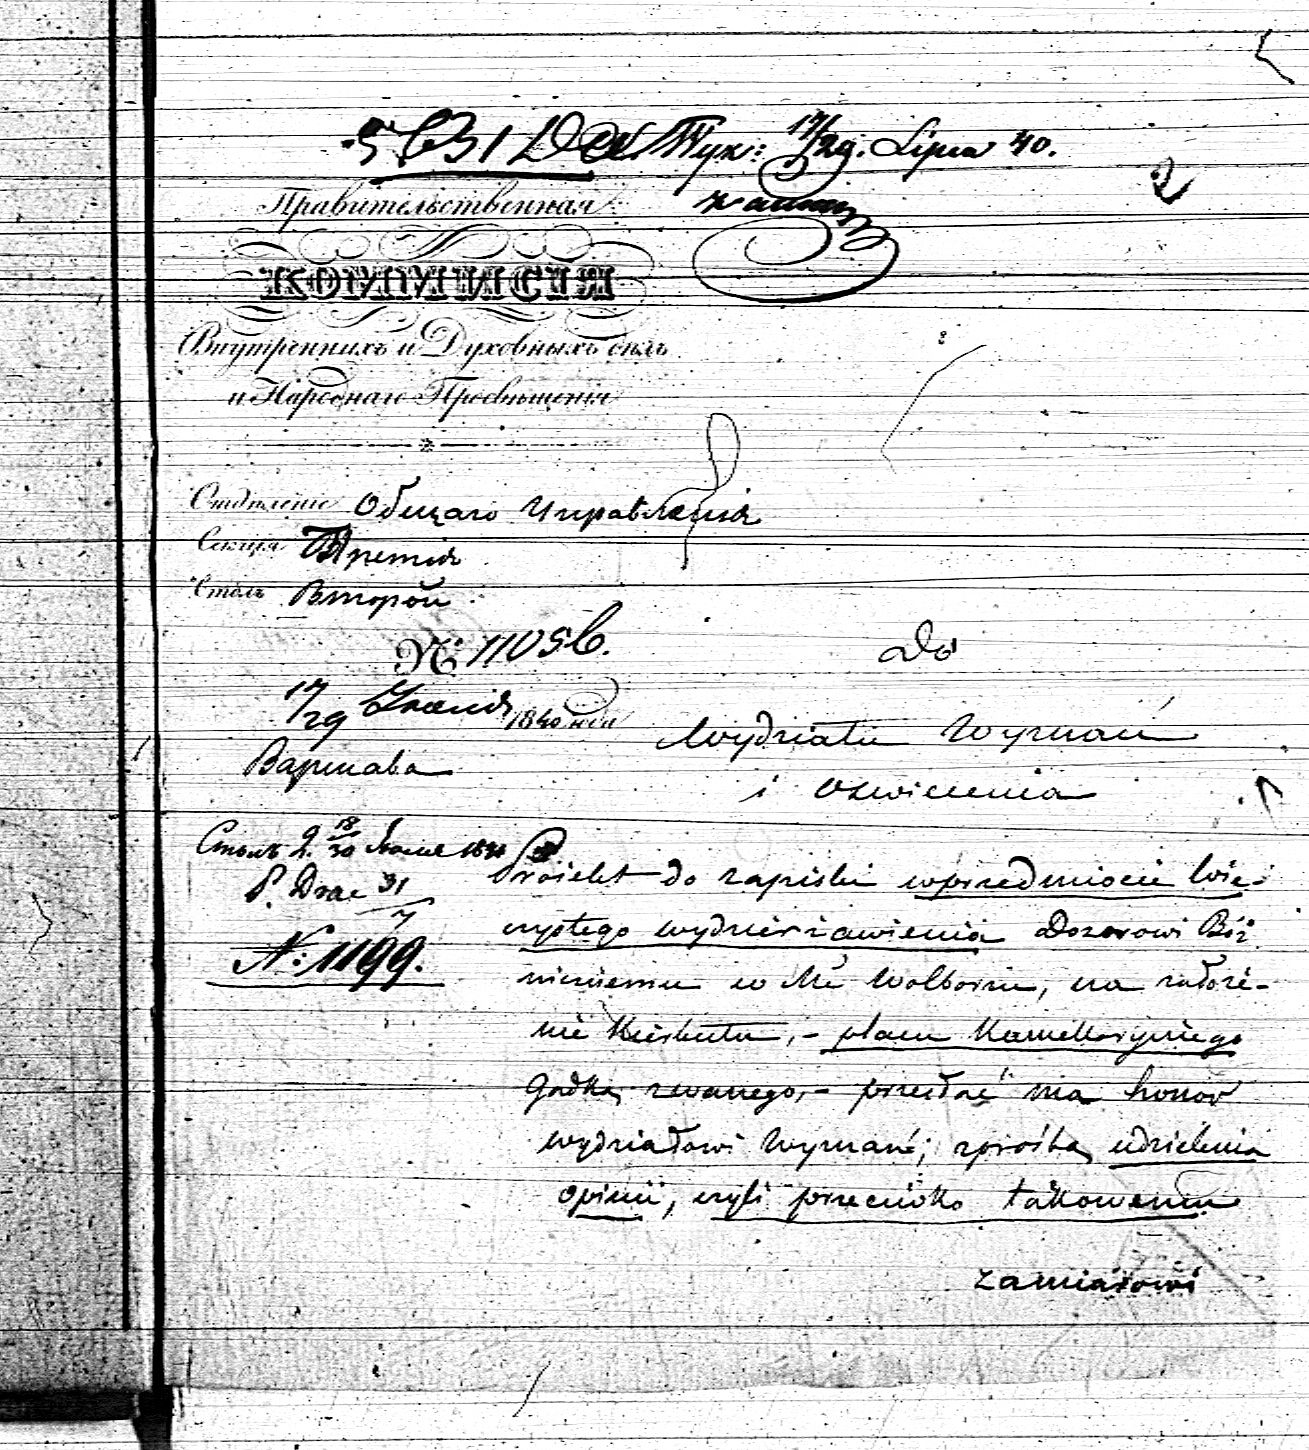 17/29. Lipca 40.
2
Правительственная
КОММИСІЯ
Внутреннихъ и Духовныхъ дѣлъ
и Народнаго Просвѣщенія
Отдѣленіе Общаго Управленія
Секція Третія
Столъ Второй
№ 11056.
17/29 1840 года
Варшава
Do
Wydziału Wyznań
i Oświecenia
18/30 1840
31/7
N: 1199.
Projekt do zapiski w przedmiocie wie-
czystego wydzierżawienia Dozorowi Bóż
niczemu w Mć Wolborzu, na założe-
nie Kierkutu, - placu Kamellaryjnego
Gadka zwanego, - przesłać ma honor
Wydziałowi Wyznań; z prośbą udzielenia
opinii, czyli przeciwko takowemu
zamiarowi